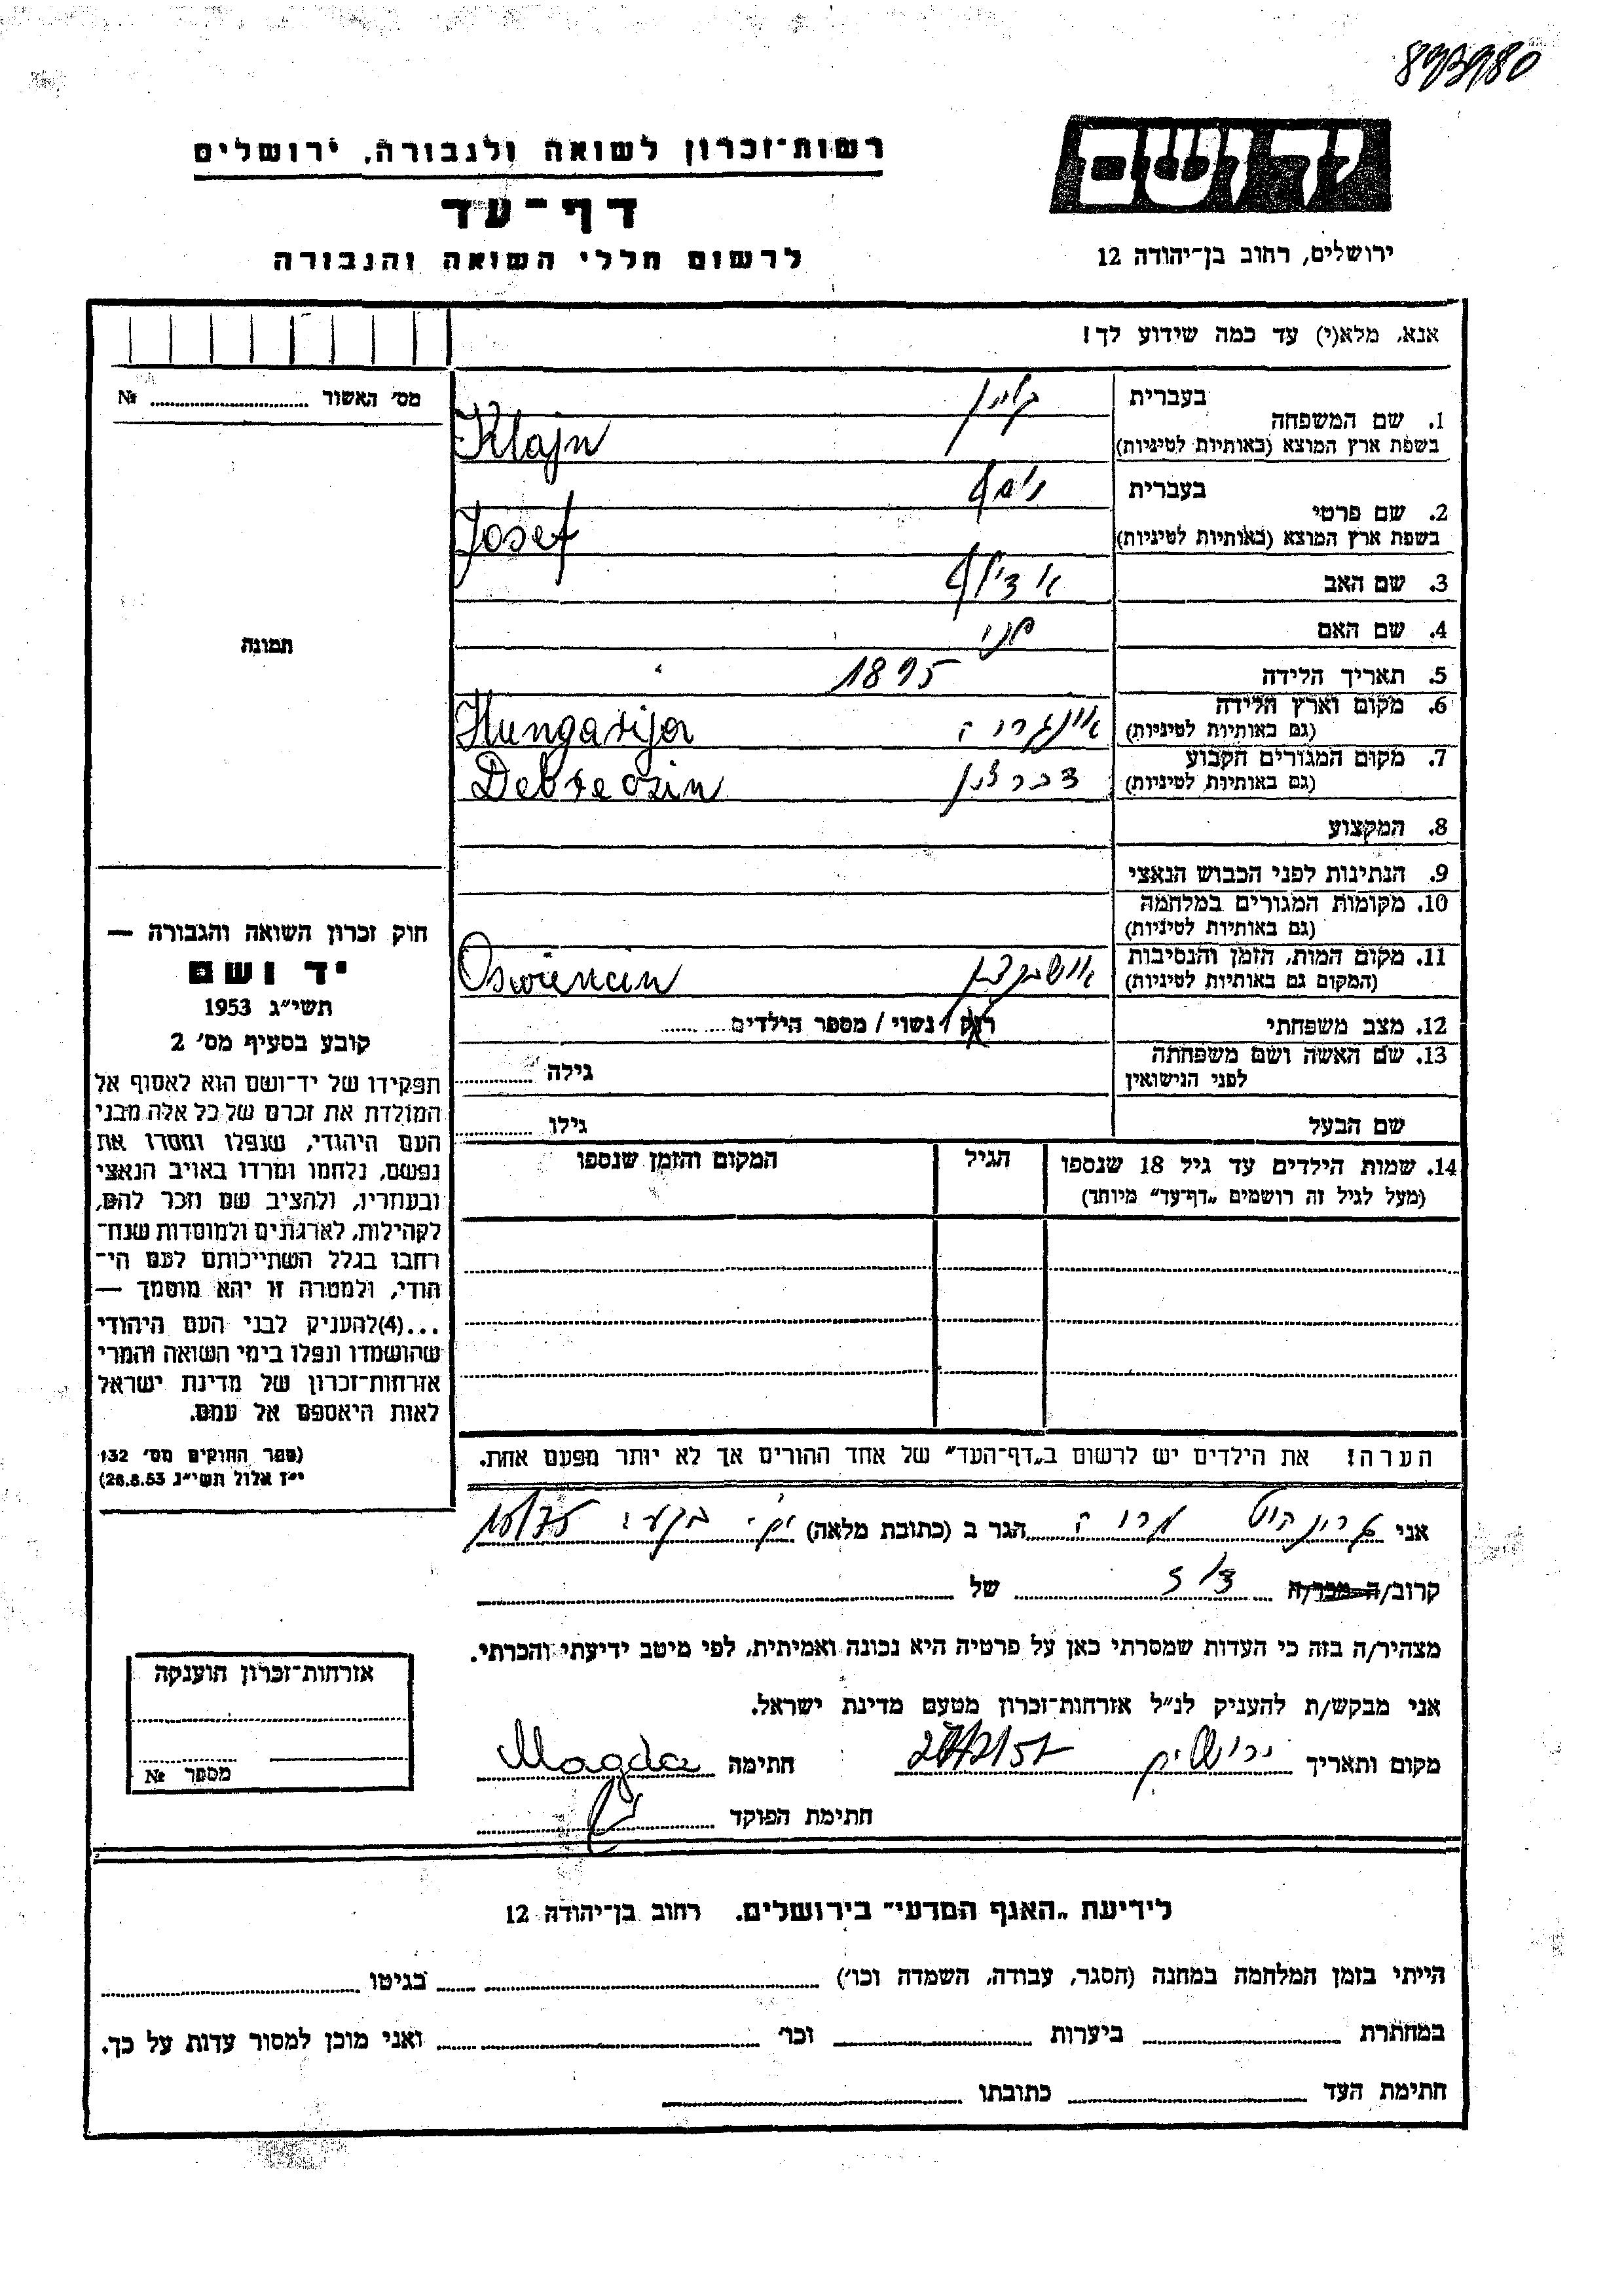 רשות־זכרון לשואה ולגבורה, ירושלים
יד ושם
דף־עד
לרשום חללי השואה והגבורה
ירושלים, רחוב בן־יהודה 12
אנא, מלא(י) עד כמה שידוע לך!
מס׳ האשור № 
1. שם המשפחה
בעברית קליין
בשפת ארץ המוצא (באותיות לטיניות) Klajn
2. שם פרטי
בעברית יוסף
בשפת ארץ המוצא (באותיות לטיניות) Josef
3. שם האב אדולף
4. שם האם פני
5. תאריך הלידה 1895
6. מקום וארץ הלידה
(גם באותיות לטיניות) אונגריה Hungarija
7. מקום המגורים הקבוע
(גם באותיות לטיניות) דברצין Debreczin
8. המקצוע
9. הנתינות לפני הכבוש הנאצי
10. מקומות המגורים במלחמה
(גם באותיות לטיניות)
11. מקום המות, הזמן והנסיבות
(המקום גם באותיות לטיניות) Oswiencin
12. מצב משפחתי רווק / נשוי / מספר הילדים
13. שם האשה ושם משפחתה
לפני הנישואין גילה
שם הבעל גילו
14. שמות הילדים עד גיל 18 שנספו הגיל המקום והזמן שנספו
(מעל לגיל זה רושמים „דף־עד״ מיוחד)
תמונה
חוק זכרון השואה והגבורה —
יד ושם
תשי״ג 1953
קובע בסעיף מס׳ 2
תפקידו של יד־ושם הוא לאסוף אל
המולדת את זכרם של כל אלה מבני
העם היהודי, שנפלו ומסרו את
נפשם, נלחמו ומרדו באויב הנאצי
ובעוזריו, ולהציב שם וזכר להם,
לקהילות, לארגונים ולמוסדות שנח־
רחבו בגלל השתייכותם לעם הי־
הודי, ולמטרה זו יהא מוסמך —
...(4)להעניק לבני העם היהודי
שהושמדו ונפלו בימי השואה והמרי
אזרחות־זכרון של מדינת ישראל
לאות היאספם אל עמם.
(ספר החוקים מס׳ 132
י״ז אלול תשי״ג 28.8.53)
הערה! את הילדים יש לרשום ב„דף־העד״ של אחד ההורים אך לא יותר מפעם אחת.
אני הגר ב (כתובת מלאה)
קרוב/ה מכר/ה דוד של
מצהיר/ה בזה כי העדות שמסרתי כאן על פרטיה היא נכונה ואמיתית, לפי מיטב ידיעתי והכרתי.
אני מבקש/ת להעניק לנ״ל אזרחות־זכרון מטעם מדינת ישראל.
מקום ותאריך ירושלים חתימה Magda
חתימת הפוקד
אזרחות־זכרון הוענקה
מספר №
לידיעת „האגף המדעי״ בירושלים, רחוב בן־יהודה 12
הייתי בזמן המלחמה במחנה (הסגר, עבודה, השמדה וכו׳) בגיטו
במחתרת ביערות וכו׳ ואני מוכן למסור עדות על כך.
חתימת העד כתובתו